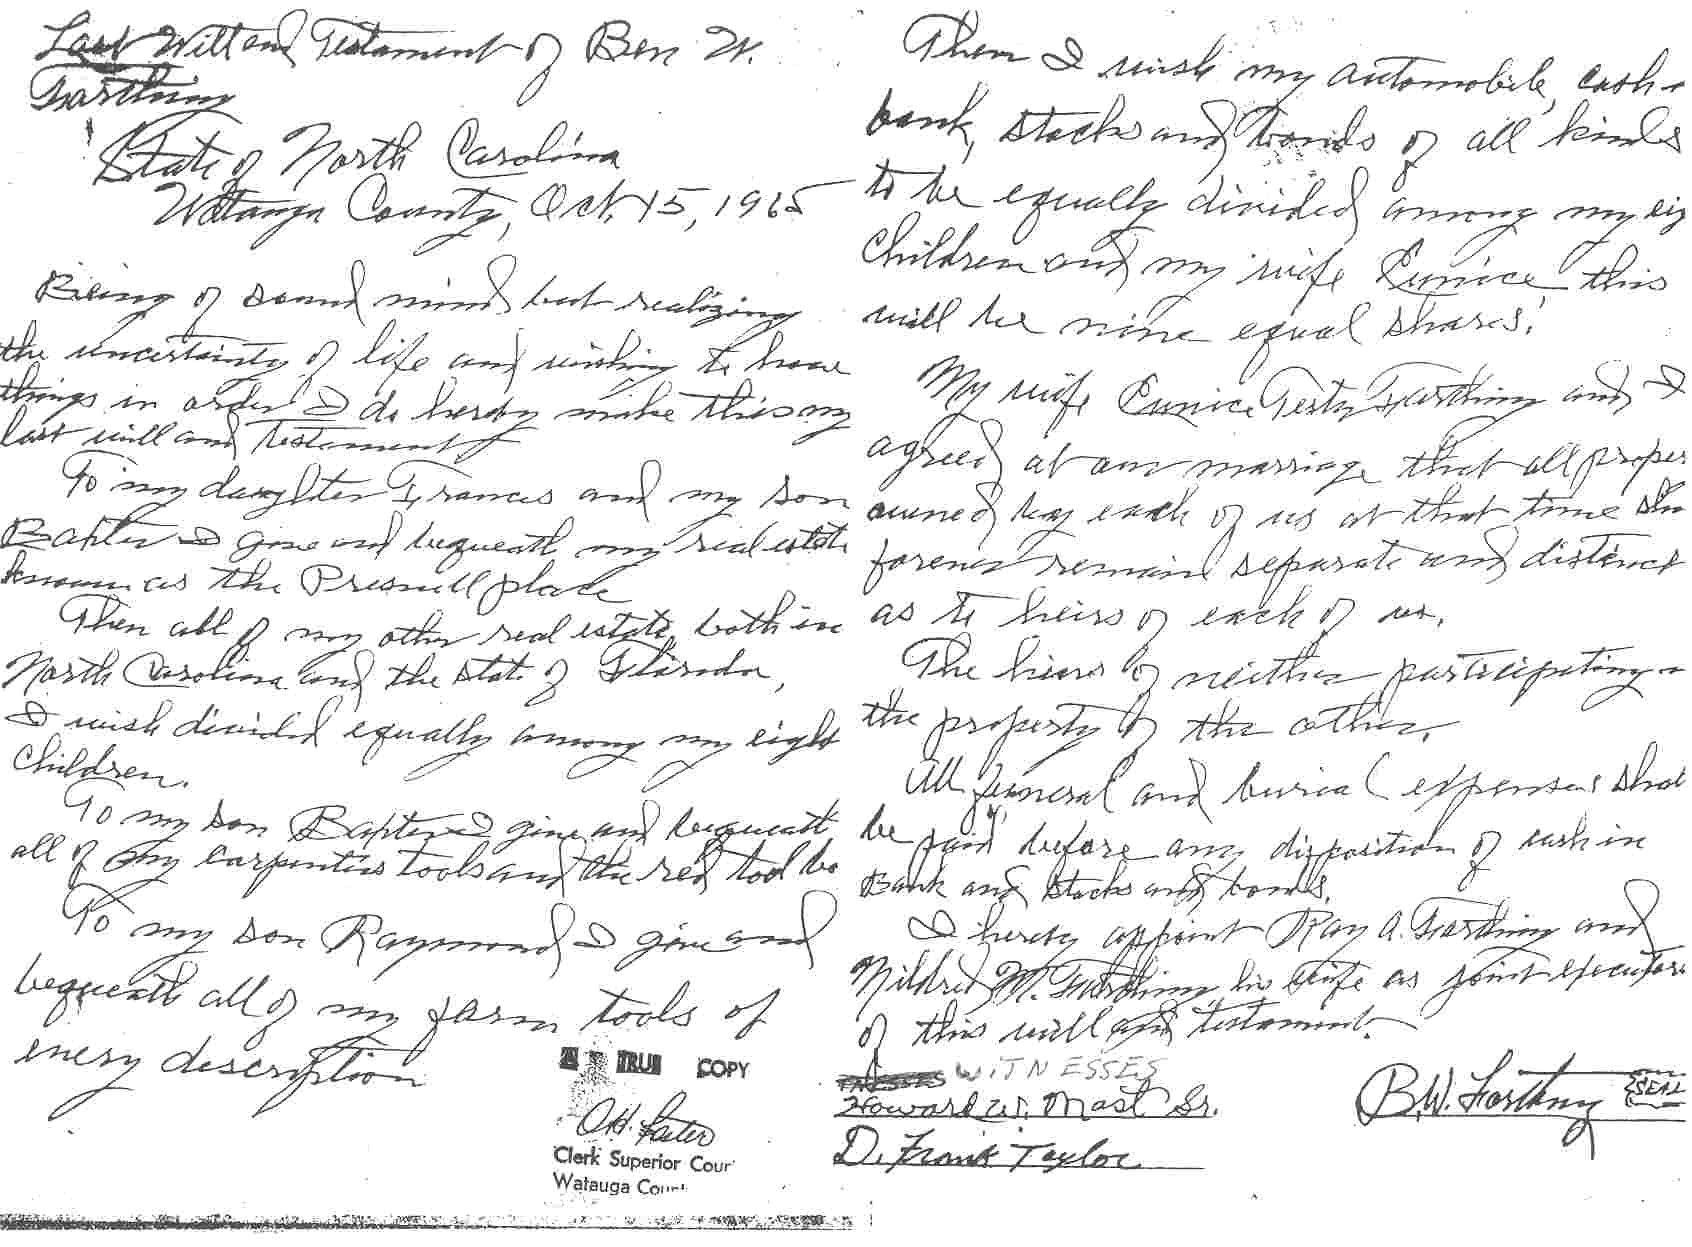 Last Will and Testament of Ben W.
Farthing
State of North Carolina
Watauga County, Oct. 15, 1965
Being of sound mind but realizing
the uncertainty of life and wishing to have
things in order I do hereby make this my
last will and testament
To my daughter Frances and my son
Baxter I give and bequeath my real estate
known as the Presnell place
Then all of my other real estate both in
North Carolina and the state of Florida,
I wish divided equally among my eight
children.
To my son Baxter I give and bequeath
all of my carpenters tools and the red tool bo
To my son Raymond I give and
bequeath all of my farm tools of
every description
A TRUE COPY
Clerk Superior Cour
Watauga Count
Then I wish my automobile, cash
bank, stocks and bonds of all kinds
to be equally divided among my eig
children and my wife Eunice, this
will be nine equal shares.
My wife Eunice Testy Farthing and I
agreed at our marriage that all proper
owned by each of us at that time sha
forever remain separate and distinct
as to heirs of each of us.
The heirs of neither participating
the property of the other.
All funeral and burial expenses shal
be paid before any disposition of cash in
Bank and stocks and bonds.
I hereby appoint Ray A. Farthing and
Mildred M. Farthing his wife as joint executors
of this will and testament.
WITNESSES
Howard W. Mast Sr.
D. Frank Taylor
B.W. Farthing SEAL